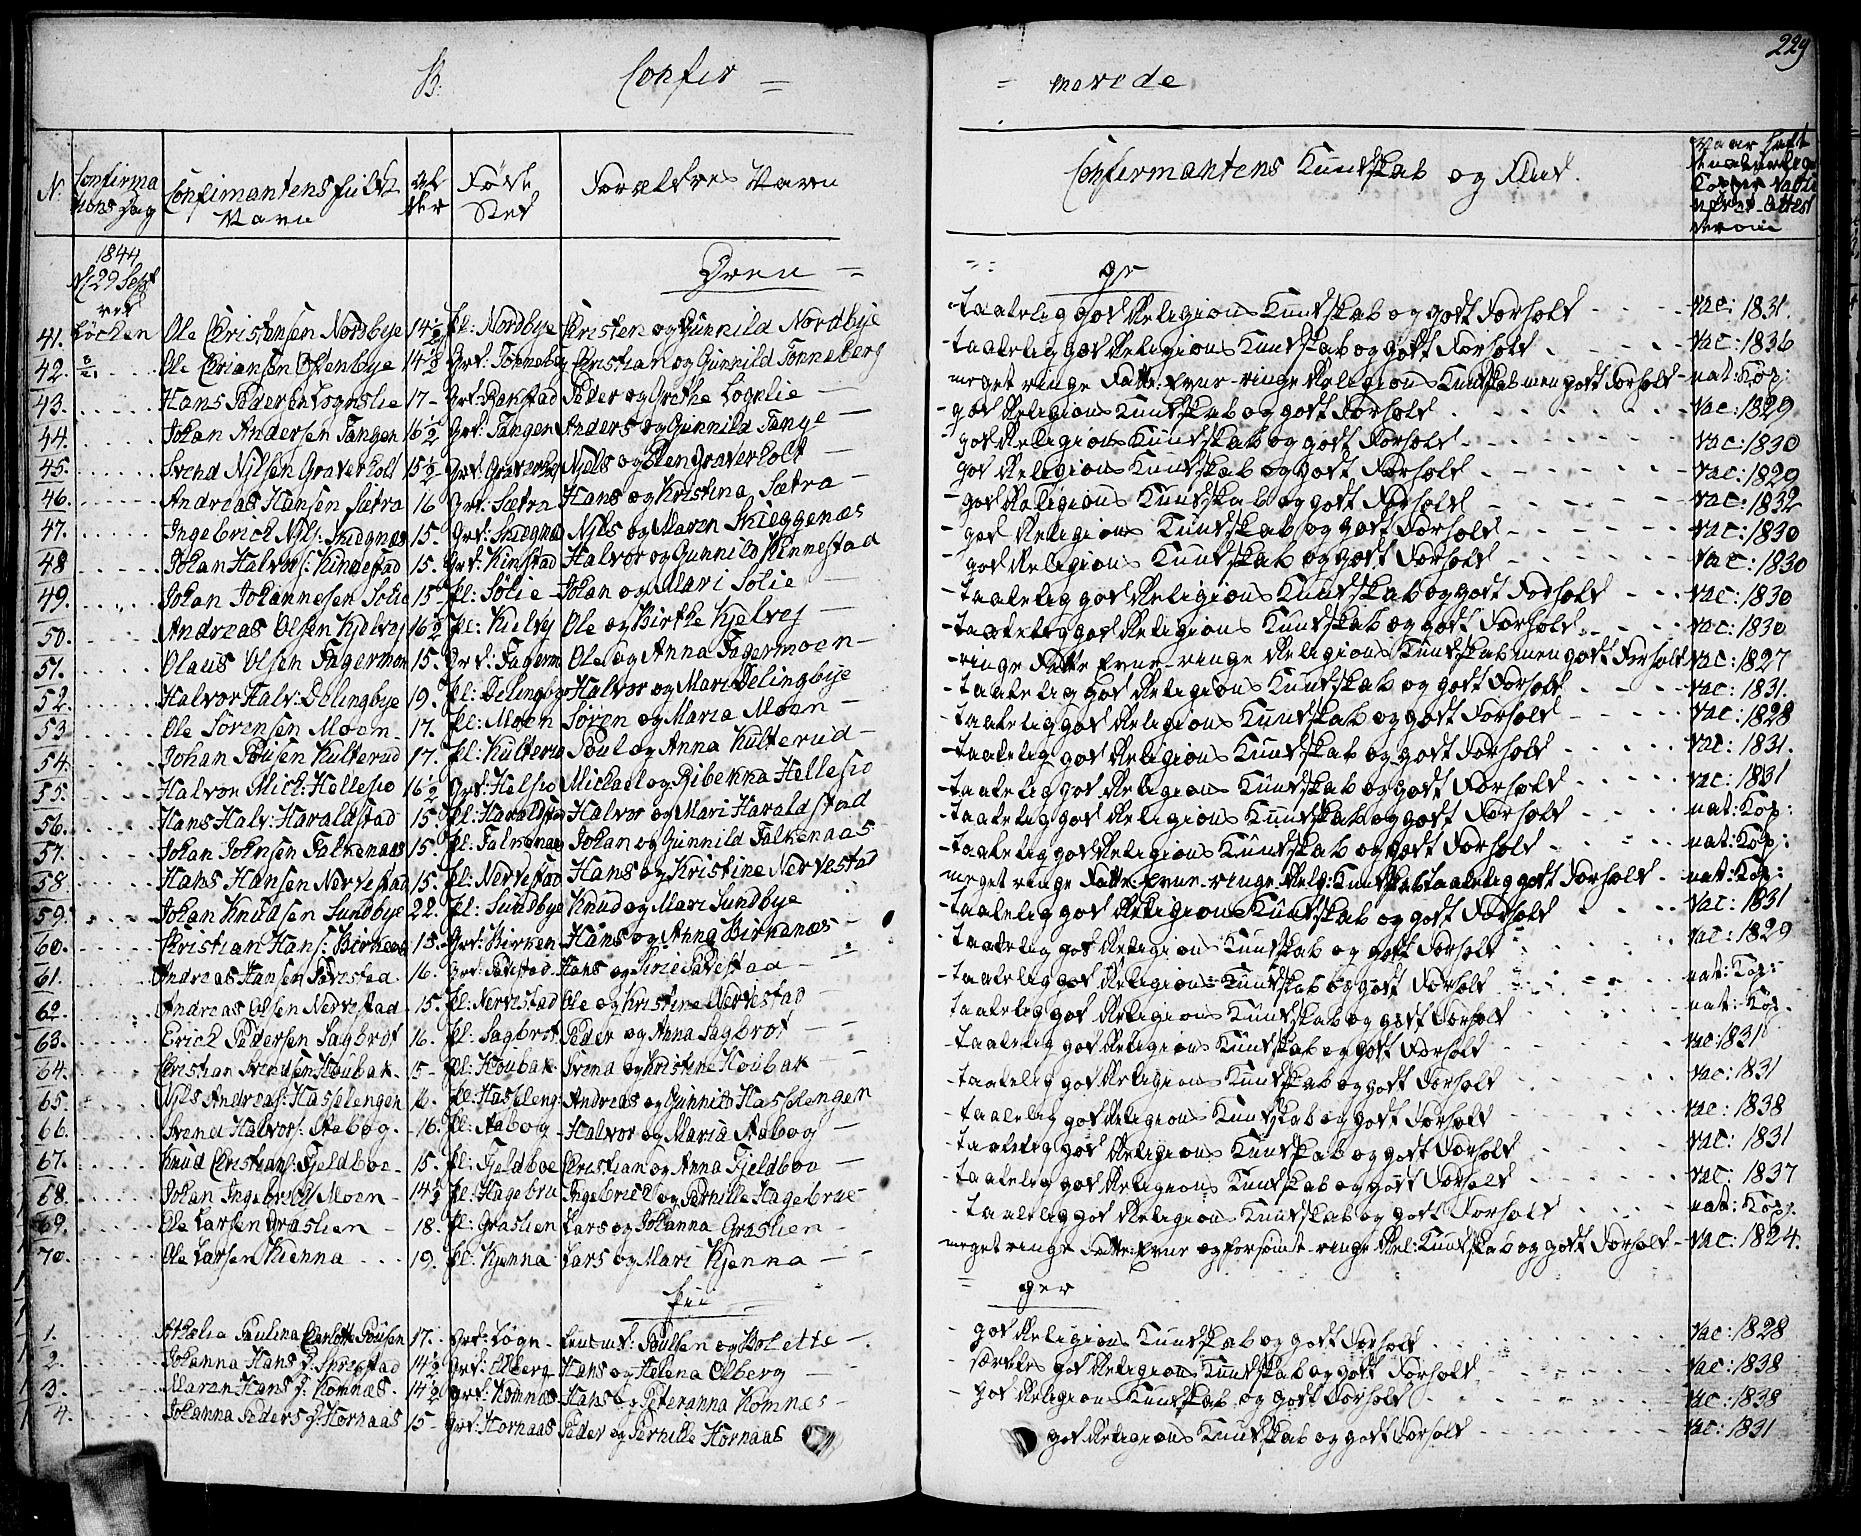 B. Confir = = merede 229
N. Confirma tions Dag Confirmantens fulde Navn Al der Føde Sted Forældres Navn Confirmantens Kundskab og Flid.
1844 d. 29 Sept ved Løchen
Dren = = ge
41. Ole Christensen Nordbye 14½ pl: Nordbye Christen og Gunnild Nordbye - taalelig god Religions Kundskab og godt Forhold - vac: 1831.
42. Ole Chriansen Ostenbye 14½ Grd: Tonneberg Christian og Gunnild Tonneberg - taalelig god Religions Kundskab og godt Forhold - vac: 1836
43. Hans Pedersen Lognlie 17 - Grd: Rakstad Peder og Grethe Lognlie - meget ringe Fatte: Evne - ringe Religions Kundskab men godt Forhold - nat: Kop:
44. Johan Andersen Tangen 16½ Grd: Tangen Anders og Gunnild Tange - god Religions Kundskab og godt Forhold - vac: 1829
45. Svend Nilsen Graverholt 15½ Grd: Graverholt Niels og Elen Graverholt - god Religions Kundskab og godt Forhold - vac: 1830
46. Andreas Hansen Sætra 16 Grd: Sætra Hans og Kristina Sætra - god Religions Kundskab og godt Forhold - vac: 1829
47. Ingebrick Nils: Skiegnæs 15. Grd: Skiegnæs Nils og Maren Skieggenæs - god Religions Kundskab og godt Forhold - vac: 1832
48 Johan Halvors: Kindestad 15. Grd: Kinstad Halvor og Gunnild Kinnestad - god Religions Kundskab og godt Forhold - vac: 1830
49. Johan Johannesen Solie 15 pl: Solie - Johan og Mari Solie - god Religions Kundskab og godt Forhold - vac: 1830
50. Andreas Olsen Kjelvej 16½ pl: Kielvej Ole og Birthe Kjelvej - taalelig god Religions Kundskab og godt Forhold - vac: 1830
51. Olaus Olsen Fagermoen 15. Grd: Fagerm Ole og Anna Fagermoen - taalelig god Religions Kundskab og godt Forhold - vac: 1830
52. Halvor Halv: Delingbye 19. pl: Delingbye Halvor og Mari Delingbye - ringe Fatte Evne - ringe Religions Kundskab men godt Forhold vac: 1827
53. Ole Sørensen Moen - 17. pl: Moen Søren og Maria Moen - taalelig god Religions Kundskab og godt Forhold - vac: 1831.
54. Johan Poulsen Kulterud 17. pl: Kulterud Poul og Anna Kulterud - taalelig god Religions Kundskab og godt Forhold - vac: 1828
55. Halvor Mich: Hellesio 16½ Grd: Helsio Michael og Ribekna Hellesio taalelig god Religions Kundskab og godt Forhold - vac: 1831.
56. Hans Halv: Haraldstad 15. pl: Haraldstad Halvor og Mari Haraldstad - taalelig god Religions Kundskab og godt Forhold - vac: 1831
57. Johan Johnsen Falkenaas 15 pl: Falkenaas Johan og Gunnild Falkenaas - taalelig god Religions Kundskab og godt Forhold - nat: Kop:
58. Hans Hansen Nervestad 15. pl: Nervestad Hans og Kristine Nervestad - taalelig god Religions Kundskab og godt Forhold - nat: Kop:
59. Johan Knudsen Sundbye 22. pl: Sundbye Knud og Mari Sundbye meget ringe Fatte: Evne - ringe Relig: Kundskab taalelig godt Forhold - nat: Kop:
60. Christian Hans: Birkenæs 15. Grd: Birken Hans og Anna Birkenæs - taalelig god Religions Kundskab og godt Forhold - vac: 1831
61. Andreas Hansen Pavestad 16. Grd: Pavestad Hans og Sirie Pavestad - taalelig god Religions Kundskab og godt Forhold vac: 1829
62. Andreas Olsen Nervestad - 15. pl: Nervestad Ole og Kristine Nervestad - taalelig god Religions Kundskab og godt Forhold nat: Kop:
63. Erich Pedersen Sagbrot 16. pl: Sagbrot Peder og Anna Sagbrot - taalelig god Religions Kundskab og godt Forhold nat: Kop.
64. Christian Svendsen Houbak - 15 - pl: Houbak Svend og Kristine Houbak - taalelig god Religions Kundskab og godt Forhold vac: 1831
65. Nils Andreas: Hasslengen 16. pl: Hasleleng Andreas og Gunnild Hasslengen taalelig god Religions Kundskab og godt Forhold vac: 1831
66. Svend Halvors: Aabog - 16. pl: Aabog - Halvor og Maria Aabog - taalelig god Religions Kundskab og godt Forhold vac: 1838
67. Knud Christians: Fjeldboe - 15. pl: Fjeldboe Christian og Anna Fjeldboe - taalelig god Religions Kundskab og godt Forhold vac: 1831
68. Johan Ingebricks: Moen - 14½ pl: Hagebru Ingebrick og Pernille Hagebrue - taalelig god Religions Kundskab og godt Forhold vac: 1837
69. Ole Larsen Graslien - 18. pl: Graslien Lars og Johanna Graslien - taalelig god Religions Kundskab og godt Forhold nat: Kop:
70. Ole Larsen Kienna - 19. pl: Kjenna Lars og Mari Kjenna - meget ringe Fatte: Evne og forsømt - ringe Rel: Kundskab og godt Forhold - vac: 1824.
Pii = ger
1. Athalia Paulina Charlotte Poulsen 17. Grd: Løgn - Lensmd: Poulsen og Bolette - god Religions Kundskab og godt Forhold vac: 1828
2. Johanna Hans D: 14½ Grd: Elberg Hans og Helena Olberg - særdeles god Religions Kundskab og godt Forhold vac: 1838
3. Maren Hans D: Komnæs - 14½ Grd: Komnæs Hans og Peteranna Komnes - god Religions Kundskab og godt Forhold vac: 1838
4. Johanna Peders D: Hornaas 15 - Grd: Hornaas Peder og Pernille Hornaas god Religions Kundskab og godt Forhold vac: 1831